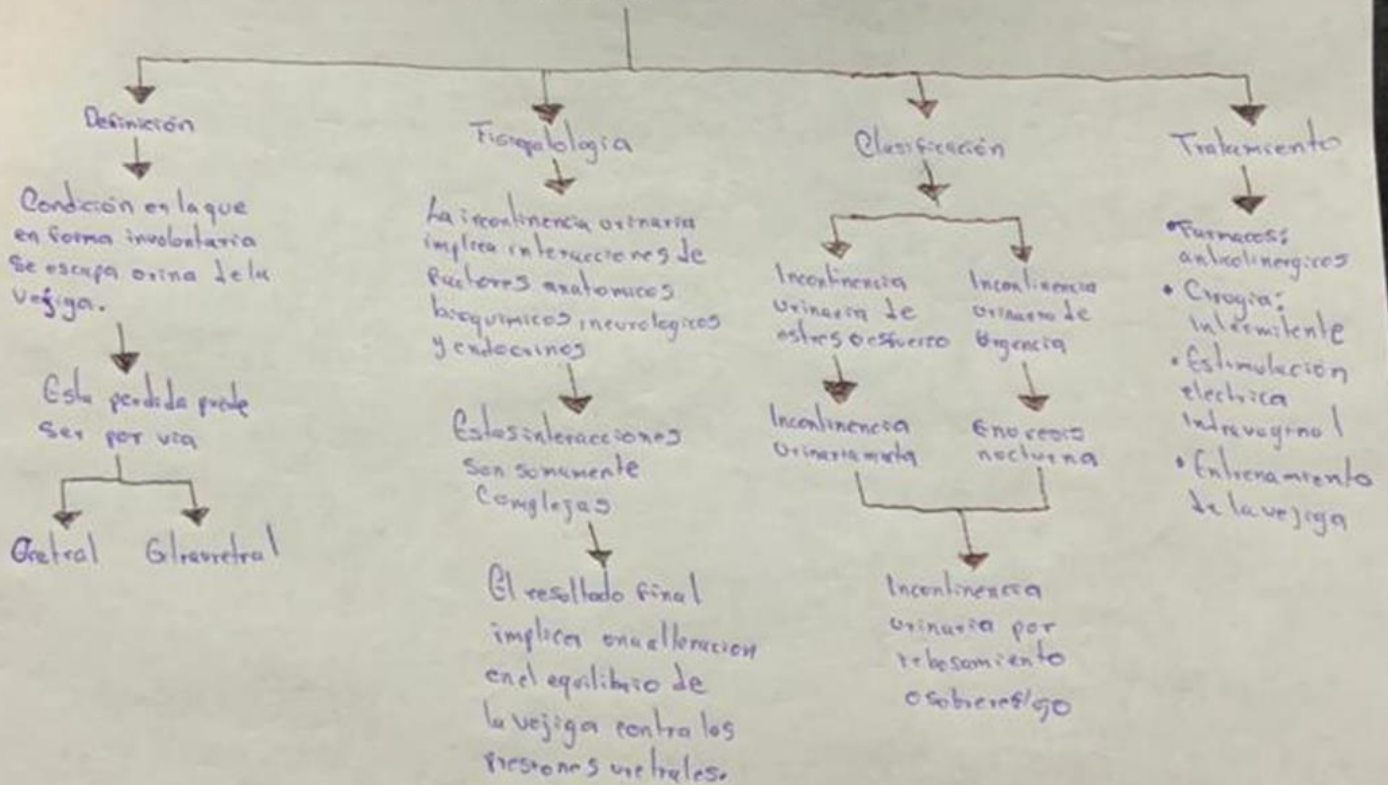 Definición
Condición en la que
en forma involuntaria
Se escapa orina de la
vejiga.
Esta perdida puede
Ser por via
Uretral
Fisiopatologia
La incontinencia urinaria
implica interacciones de
factores anatomicos
bioquimicos, neurologicos
y endocrinos
Estas interacciones
son somamente
Complejas
El resoltado final
implica una alteracion
en el equilibrio de
la vejiga contra las
presiones uretrales.
Clasificación
Incontinencia
Urinaria de
estres o esfuerzo
Incontinencia
urinaria de
Urgencia
Incontinencia
Urinaria mixta
Enuresis
nocturna
Incontinencia
urinaria por
rebosamiento
Tratamiento
• Farmacos:
anticolinergicos
• Cirogia:
Intermitente
• Estimulación
electrica
Intravaginal
• Entrenamiento
de la vejiga